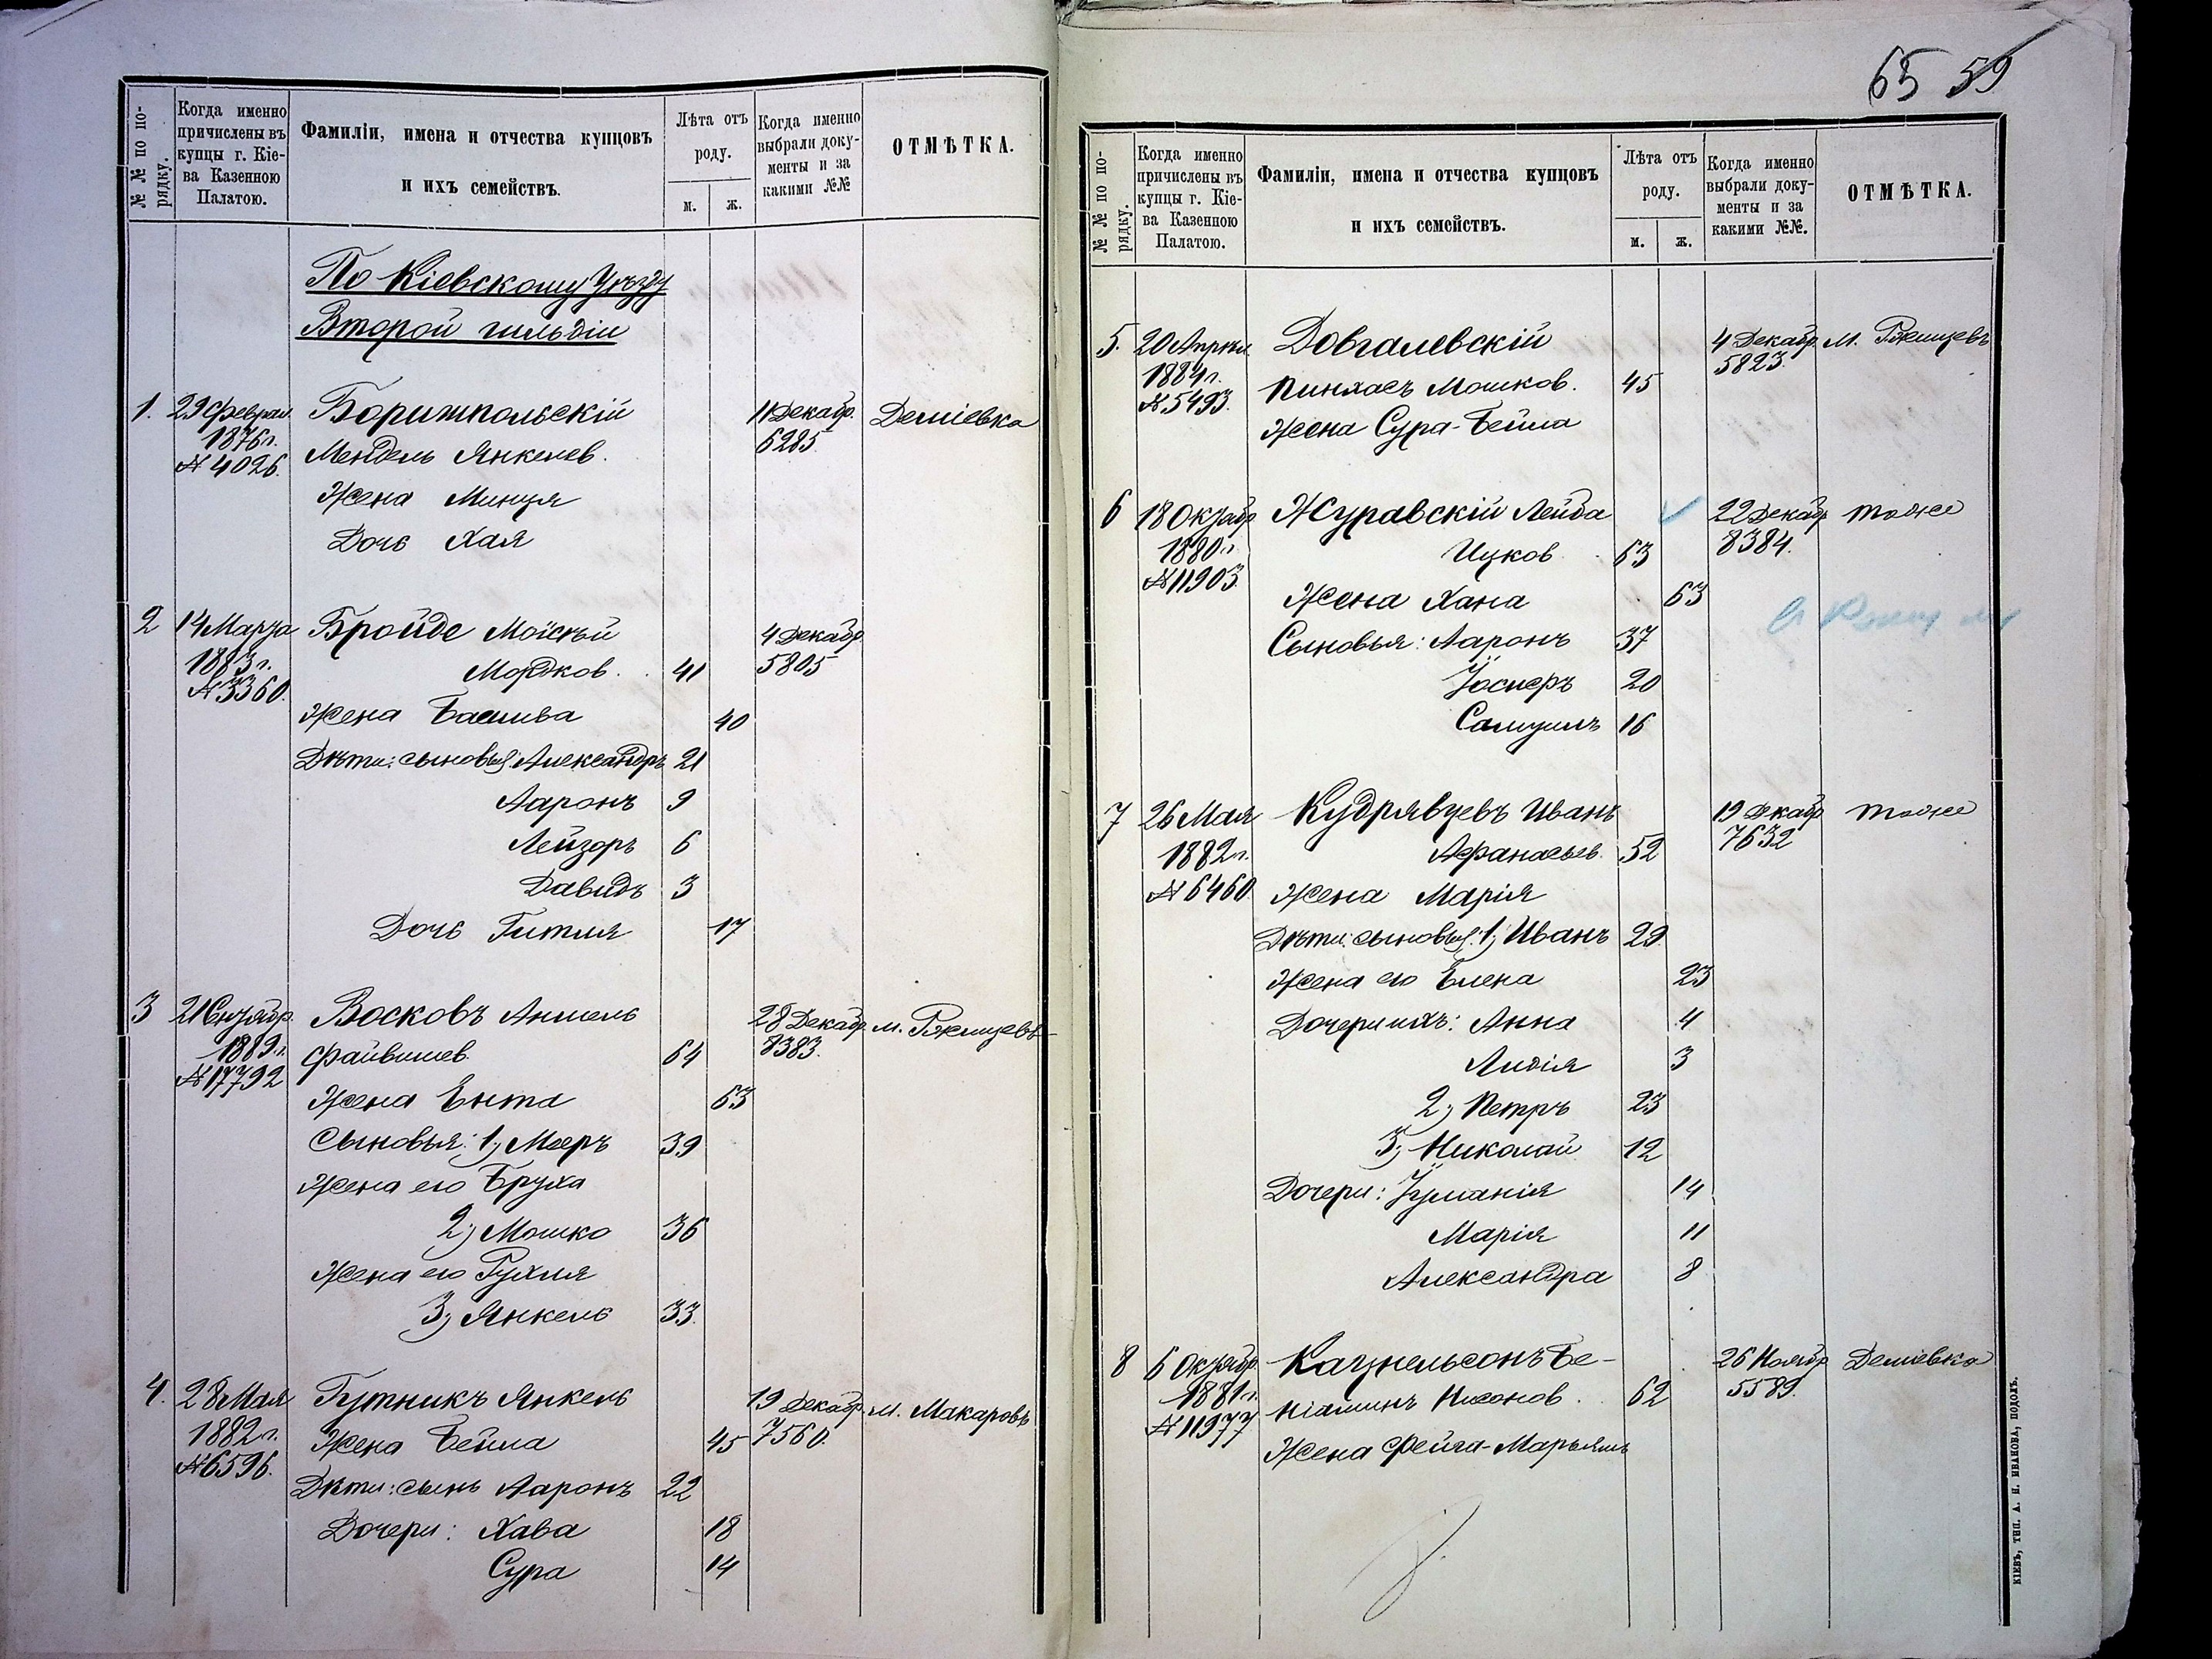 № № по по-
рядку.
Когда именно
причислены въ
купцы г. Кіе-
ва Казенною
Палатою.
Фамиліи, имена и отчества купцовъ
и ихъ семействъ.
Лѣта отъ
роду.
м. ж.
Когда именно
выбрали доку-
менты и за
какими №№
ОТМѢТКА.
По Кіевскому Уѣзду
Второй гильдіи
1. 29 Феврал. Боришпольскій 11 Декабр. Деміевка
1876 г. Мендель Янкелев. 6285
№ 4026.
Жена Минця
Дочь Хая
2 14 Марта Бройде Моісѣй 4 Декабр
1883 г. Мордков. 41 5805
№ 3360.
Жена Башива 40
Дѣти: сыновья: Александръ 21
Ааронъ 9
Лейзоръ 6
Давидъ 3
Дочь Гитля 17
3 21 Сентябр. Восковъ Аншель 28 Декабр. м. Ржищевъ
1889 г. Файвишев. 64 8383.
№ 17792
Жена Ента 63
Сыновья: 1, Мееръ 39
Жена его Бруха
2, Мошко 36
Жена его Рухля
3, Янкель 33
4. 28 Мая Гутникъ Янкель 19 Декабр. м. Макаровъ
1882 г. Жена Бейла 45 7560.
№ 6596.
Дѣти: сынъ Ааронъ 22
Дочери: Хава 18
Сура 14
65 59
№ № по по-
рядку.
Когда именно
причислены въ
купцы г. Кіе-
ва Казенною
Палатою.
Фамиліи, имена и отчества купцовъ
и ихъ семействъ.
Лѣта отъ
роду.
м. ж.
Когда именно
выбрали доку-
менты и за
какими №№.
ОТМѢТКА.
5. 20 Апрѣл Довгалевскій 4 Декабр. м. Ржищевъ
1884 г. Пинхасъ Мошков. 45 5823.
№ 5493.
Жена Сура-Бейла
6 18 Октябр Журавскій Лейба 22 Декабр тоже
1880 г. Ицков 63 8384.
№ 11903.
Жена Хана 63
Сыновья: Ааронъ 37
Іосперъ 20
Самуилъ 16
7 26 Мая Кудрявцевъ Иванъ 19 Декабр тоже
1882 г. Афанасьев. 52 7632
№ 6460. Жена Марія
Дѣти: сыновья: 1, Иванъ 29
Жена его Елена 23
Дочери ихъ: Анна 4
Лидія 3
2, Петръ 23
3, Николай 12
Дочери: Іуліанія 14
Марія 11
Александра 8
8 6 Октябр. Кацнельсонъ Бе- 26 Ноябр Деміевка
1881 г. ніаминъ Нисонов. 62 5589.
№ 11977
Жена Фейга-Марьямъ
КІЕВЪ, ТИП. А. Н. ИВАНОВА, ПОДОЛЪ.